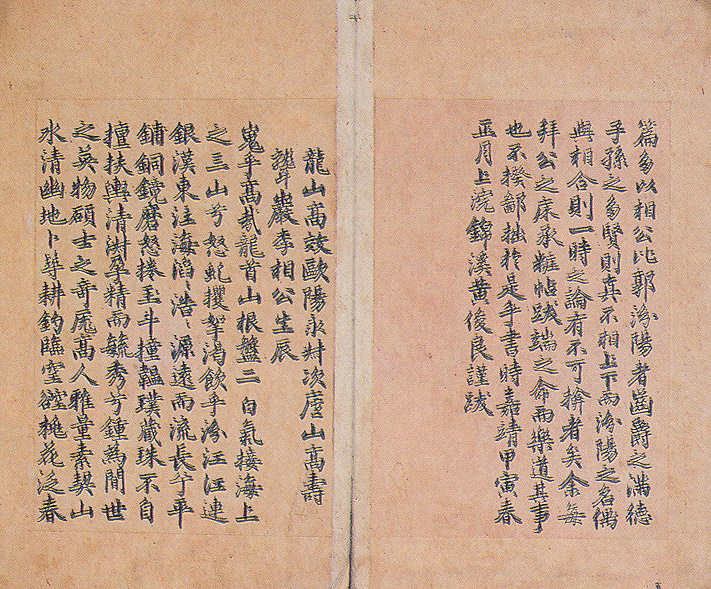 篇多以相公比郭汾陽者齒爵之满德
子孫之多賢則真不相上下而汾陽之名偶
與相合則一時之論有不可揜者矣余每
拜公之床承粧帖跋端之命而樂道其事
也不揆鄙拙於是乎書時嘉靖甲寅春
正月上浣錦溪黄俊良謹跋
龍山高效歐陽永叔次廬山高壽
聾巖李相公生辰
嵬乎高哉龍首山根盤二白氣接海上
之三山兮怒虬攫拏渴飲乎汾汪汪連
銀漢東注海滔〻浩〻源遠而流長兮平
鋪銅鏡磨怒捲玉斗撞韞璞藏珠不自
擅扶輿清淑孕精而毓秀兮鍾為間世
之英物碩士之奇厖高人雅量素契山
水清幽地卜築耕釣臨空谾桃花泛春